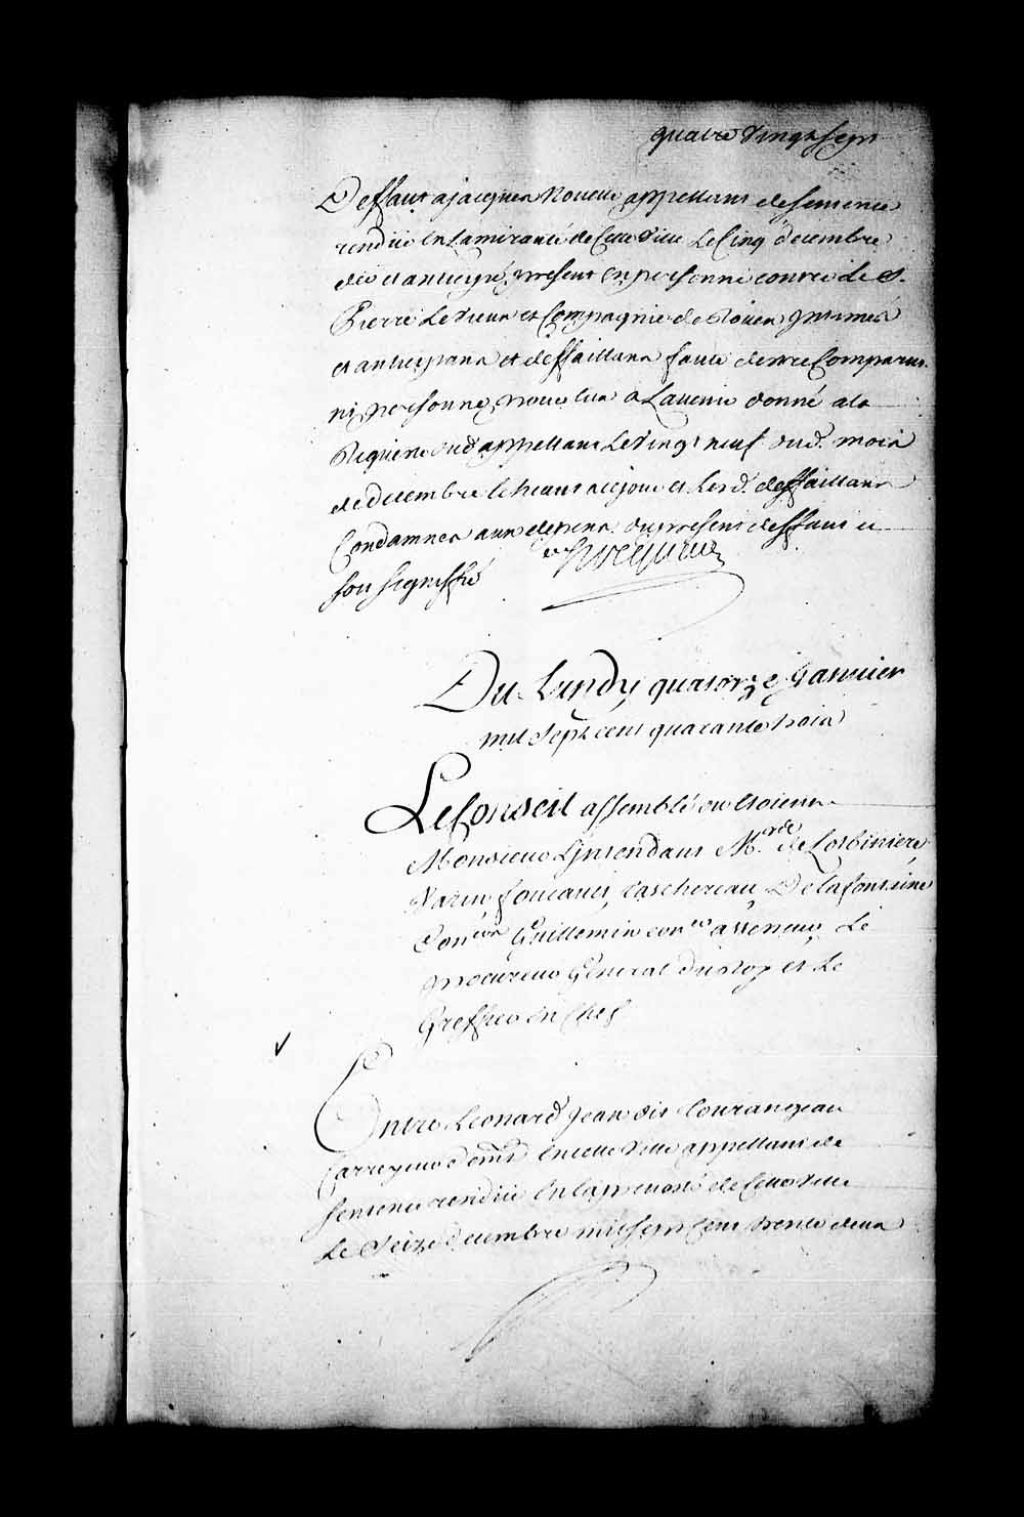 quatre vingt sept
Deffaut a jacques Nouette appellant de sentence
rendüe en Lamirauté de Cette ville Le Cinq decembre
der et anticipé, present en personne contre le S.
Pierre Levieux et Compagnie de Roüen Intimés
et anticipans et deffaillans faute destre Comparus
ny personne pour eux a Lavenir donné ala
Requeste dud appellant Le vingt neuf dud. mois
de decembre lecheant acejour et Lesd. deffaillans
Condamnés aux depens du present deffaut et
soit signiffié
Du Lundy quatorze Janvier
mil Sept cent quarante trois
Le Conseil assemblé ou Etoient
Monsieur L'Intendant Mrs de Lotbiniere
Varin foucault, taschereau, De Lafontaine
Con.ers Guillemin con.er assesseur, Le
procureur General du Roy et Le
Greffier en Chef
Entre Leonard Jean dit tourangeau
Carreyeur dem.t en cette ville appellant de
sentence rendüe en la prevosté de Cette ville
Le Seize decembre mil sept cent trente deux